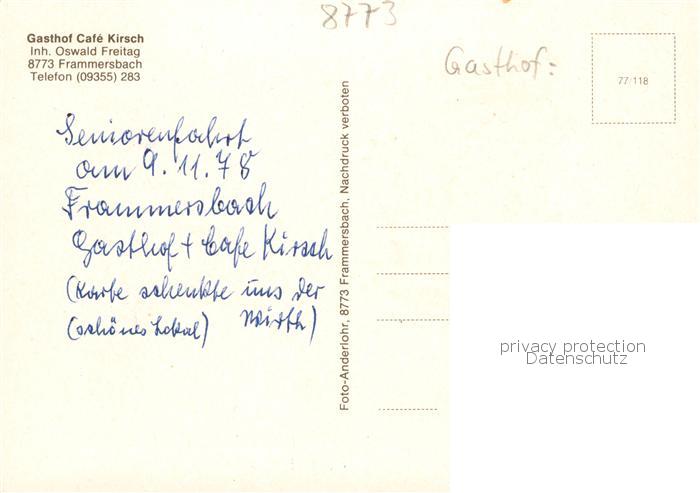 8773
Gasthof Café Kirsch
Inh. Oswald Freitag
8773 Frammersbach
Telefon (09355) 283
Gasthof:
77/118
Seniorenfahrt
am 9.11.78
Frammersbach
Gasthof + Cafe Kirsch
(Karte schenkte uns der
Wirth)
(schönes Lokal)
Foto-Anderlohr, 8773 Frammersbach, Nachdruck verboten
privacy protection
Datenschutz